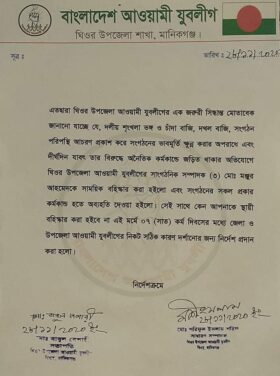 বাংলাদেশ আওয়ামী যুবলীগ
ঘিওর উপজেলা শাখা, মানিকগঞ্জ।
সূত্র :
তারিখ :
এতদ্বারা ঘিওর উপজেলা আওয়ামী যুবলীগের এক জরুরী সিদ্ধান্ত মোতাবেক
জানানো যাচ্ছে যে, দলীয় শৃংখলা ভঙ্গ ও চাঁদা বাজি, দখল বাজি, সংগঠন
পরিপন্থি আচরণ প্রকাশ করে সংগঠনের ভাবমূর্তি ক্ষুন্ন করার অপরাধে এবং
দীর্ঘদিন যাবৎ তার বিরুদ্ধে অনৈতিক কর্মকান্ডে জড়িত থাকার অভিযোগে
ঘিওর উপজেলা আওয়ামী যুবলীগের সাংগঠনিক সম্পাদক (৩) মোঃ মঞ্জুর
আহমেদকে সাময়িক বহিস্কার করা হইলো এবং সংগঠনের সকল প্রকার
কর্মকান্ড হতে অব্যহতি দেওয়া হইলো। সেই সাথে কেন আপনাকে স্থায়ী
বহিস্কার করা হইবে না এই মর্মে ০৭ (সাত) কর্ম দিবসের মধ্যে জেলা ও
উপজেলা আওয়ামী যুবলীগের নিকট সঠিক কারণ দর্শানোর জন্য নির্দেশ প্রদান
করা হলো।
নির্দেশক্রমে
২৮/১১/২০২০ ইং
সভাপতি
ঘিওর উপজেলা আওয়ামী যুবলীগ
২৮/১১/২০২০ ইং
সাধারণ সম্পাদক
ঘিওর উপজেলা আওয়ামী যুবলীগ